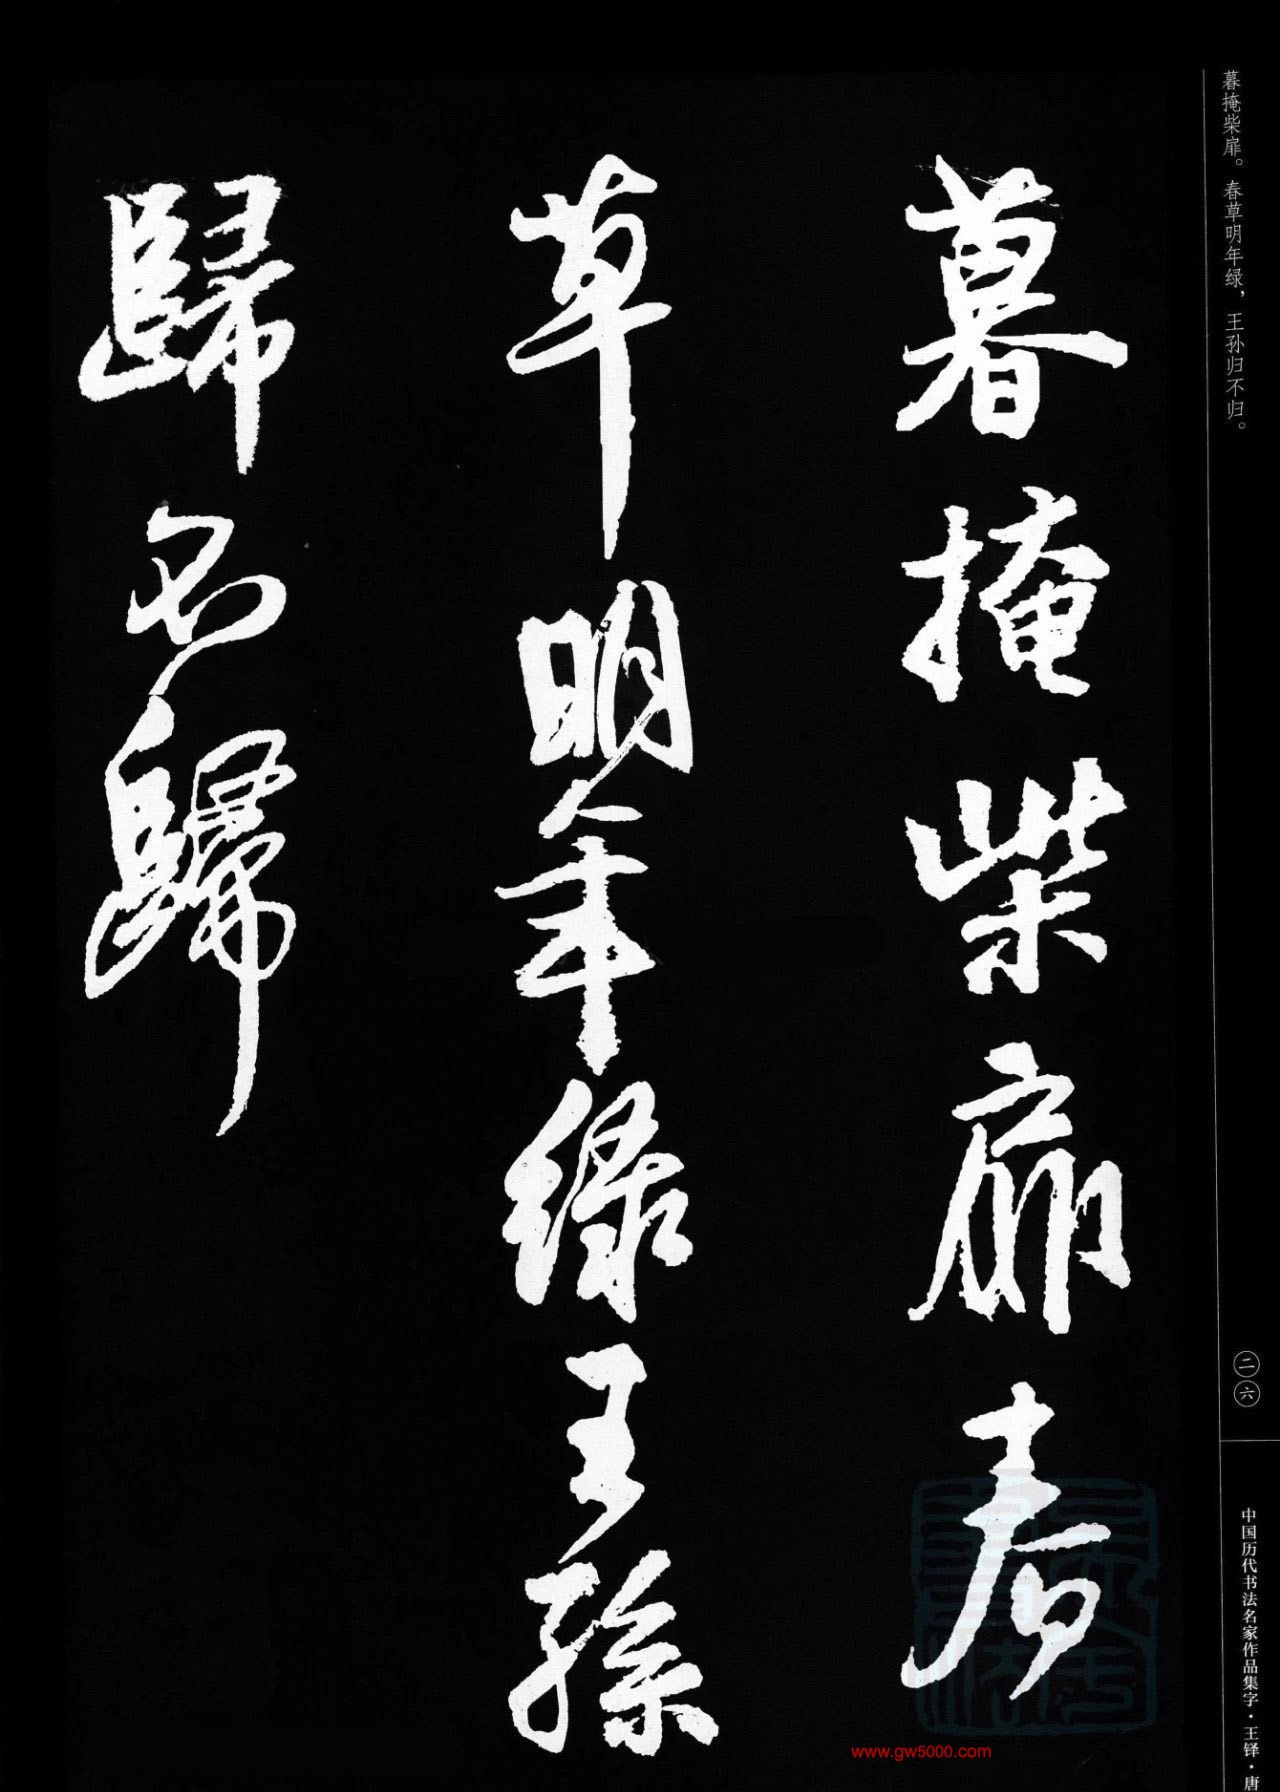 暮掩柴扉。春草明年绿，王孙归不归。
暮掩柴扉春
草明年绿王孫
歸不歸
二六
中国历代书法名家作品集字·王铎·唐
www.gw5000.com